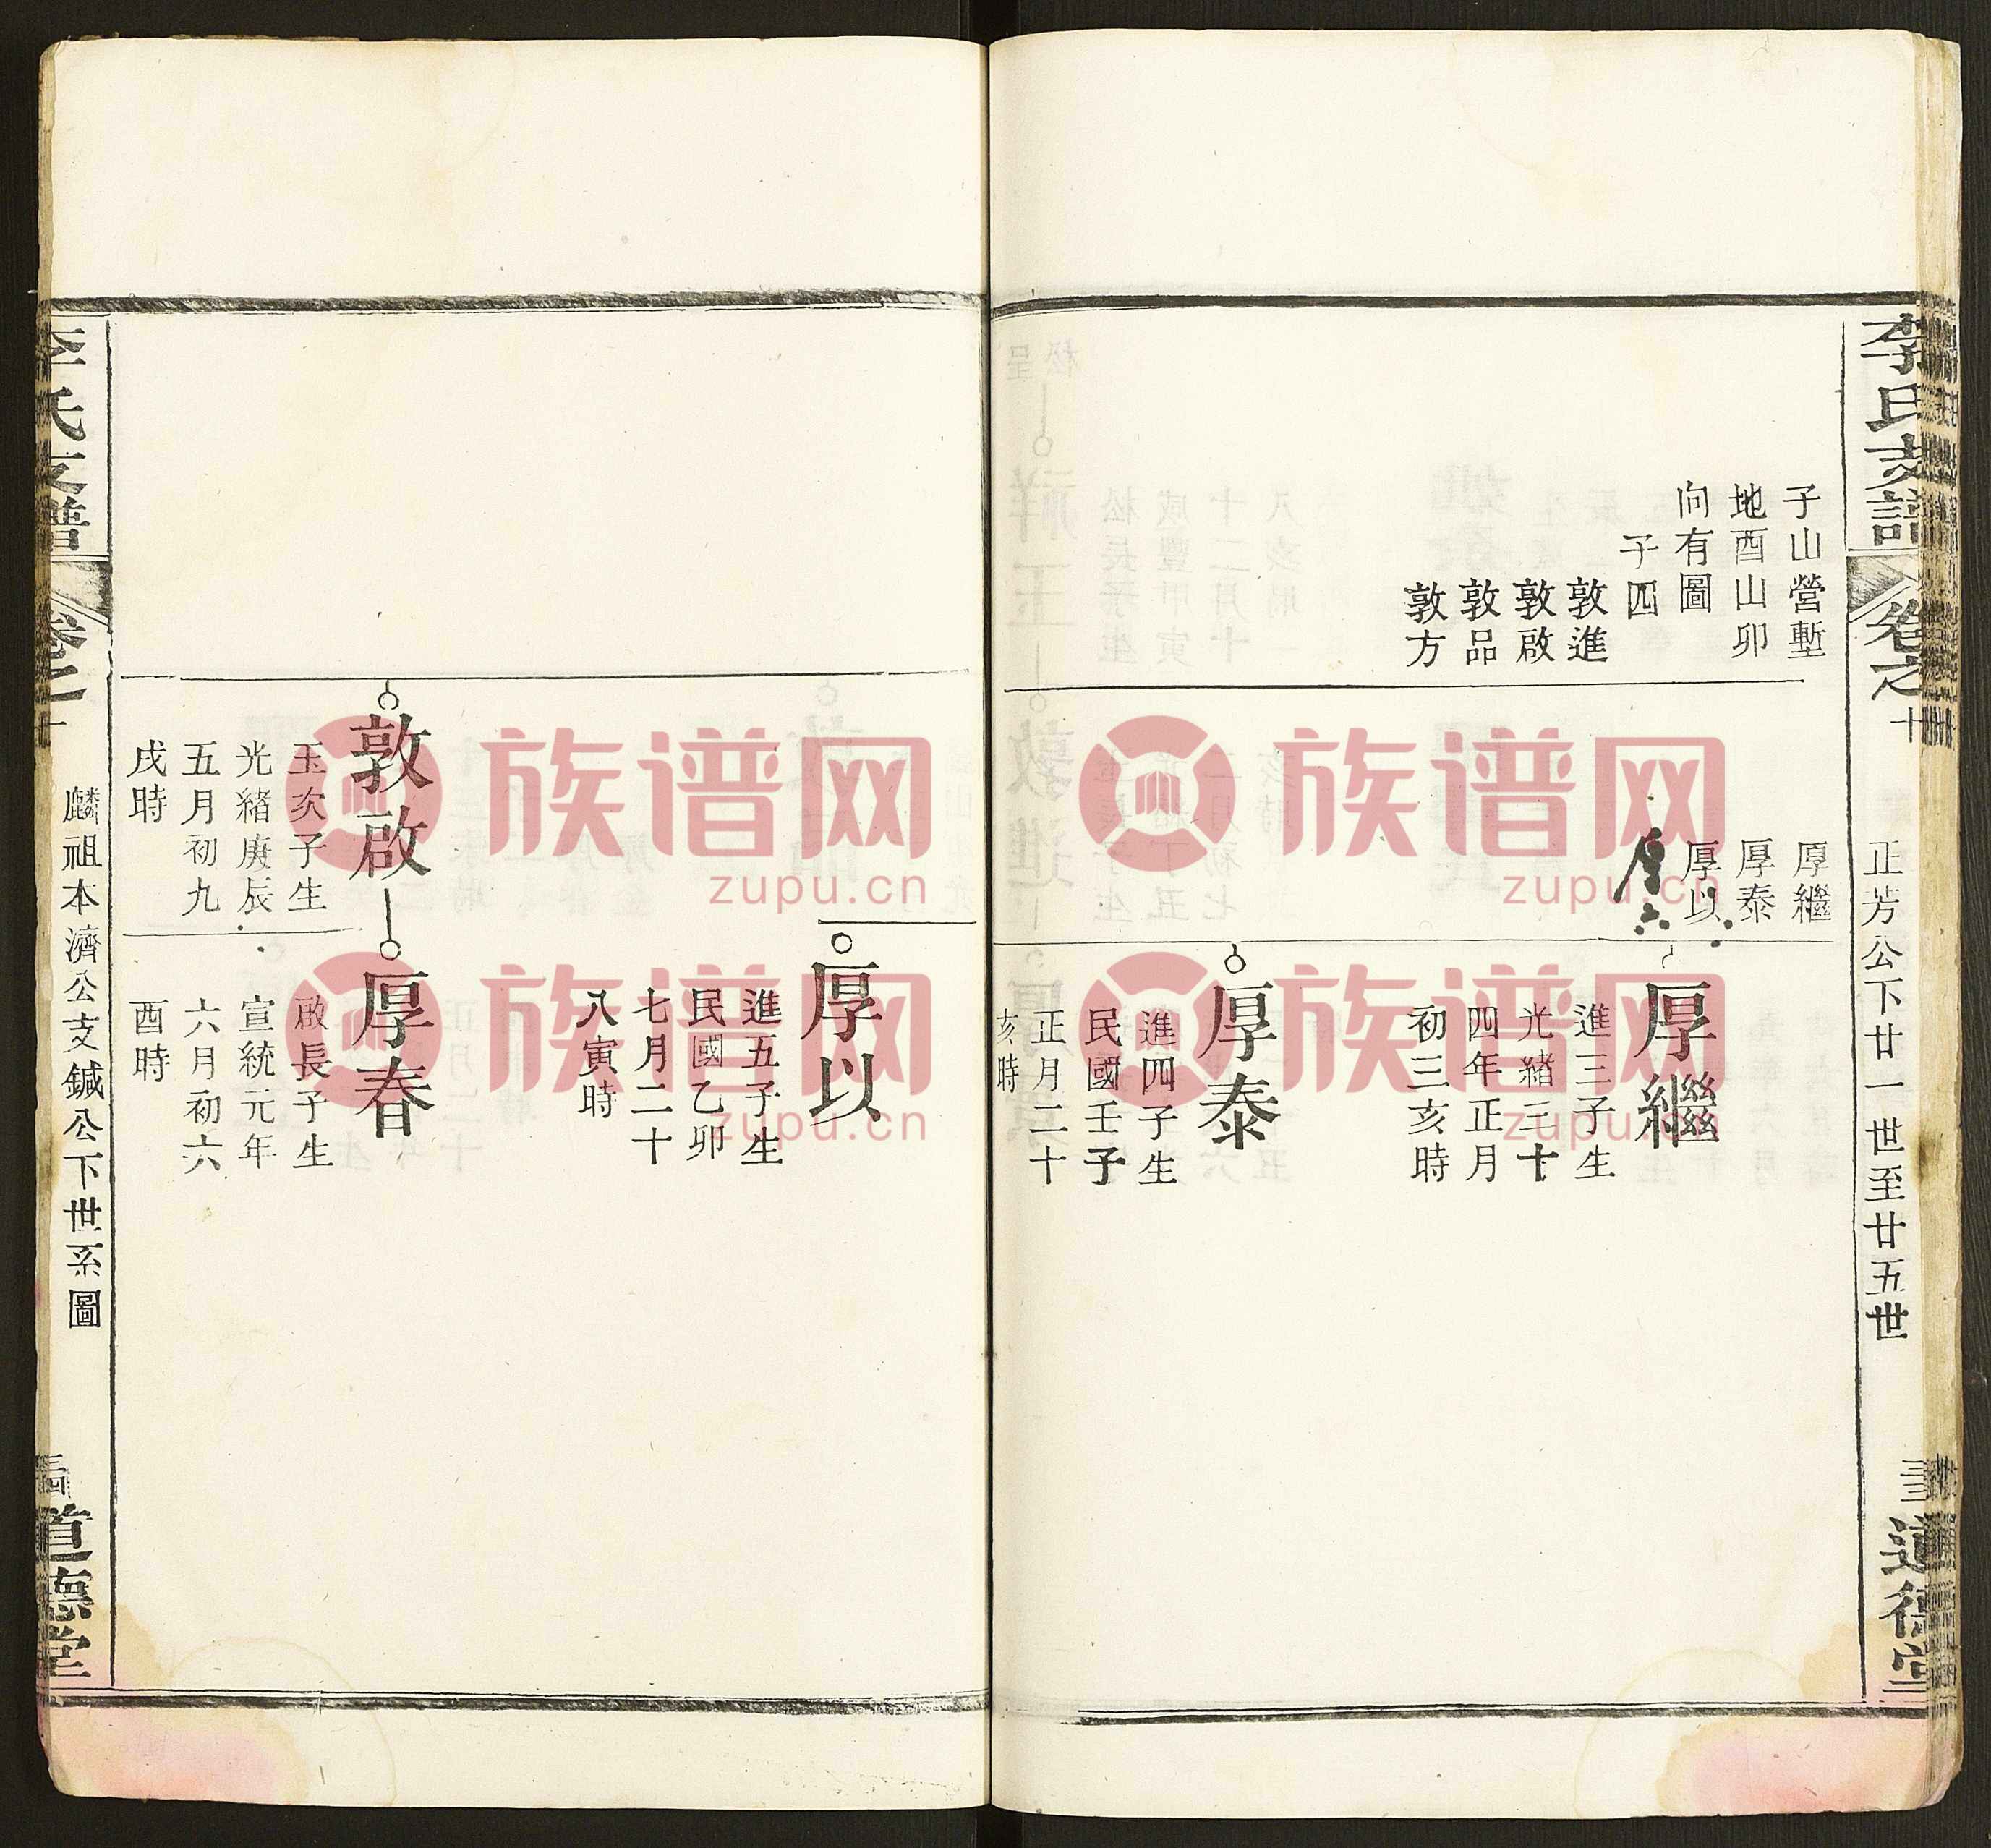 李氏支譜
卷之十
正芳公下廿一世至廿五世
三三
道德堂
子山營塹
地酉山卯
向有圖
子四
敦進
敦啟
敦品
敦方
厚繼
厚泰
厚以
厚
厚繼
進三子生
光緒三十
四年正月
初三亥時
厚泰
進四子生
民國壬子
正月二十
亥時
厚以
進五子生
民國乙卯
七月二十
八寅時
敦啟
玉次子生
光緒庚辰
五月初九
戌時
厚春
啟長子生
宣統元年
六月初六
酉時
李氏支譜
卷之十
麟祖本濟公支鍼公下世系圖
三四
道德堂
族谱网
zupu.cn
族谱网
zupu.cn
族谱网
zupu.cn
族谱网
zupu.cn